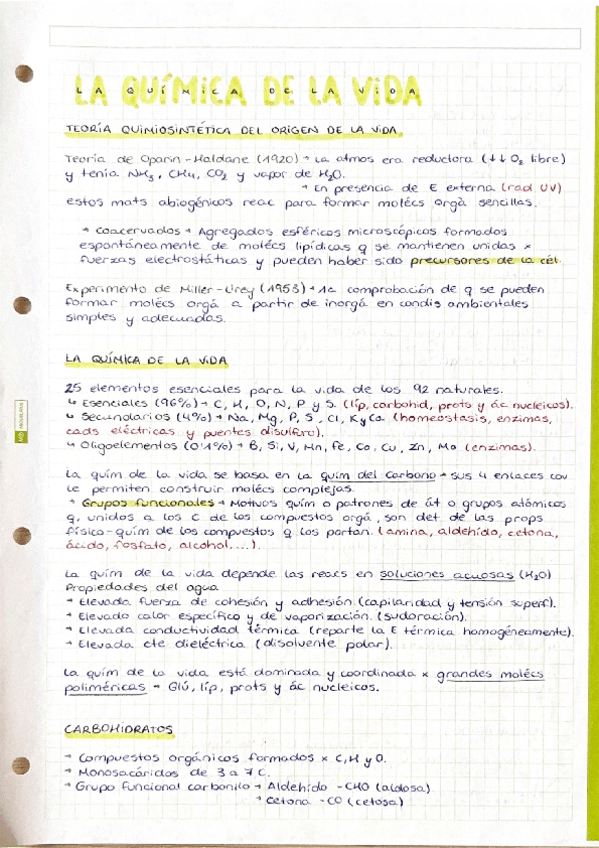 LA QUÍMICA DE LA VIDA
TEORÍA QUIMIOSINTÉTICA DEL ORIGEN DE LA VIDA.
Teoría de Oparin-Haldane (1920) → La atmos era reductora (↓↓ O₂ libre)
y tenía NH₃, CH₄, CO₂ y vapor de H₂O.
→ En presencia de E externa (rad UV)
estos mats abiogénicos reac para formar molécs orgà sencillas.
→ Coacervados → Agregados esféricos microscópicos formados
espontáneamente de molécs lipídicas q se mantienen unidas ×
fuerzas electrostáticas y pueden haber sido precursores de la cél.
Experimento de Miller-Urey (1953) → 1a comprobación de q se pueden
formar molécs orgá a partir de inorgá en condis ambientales
simples y adecuadas.
LA QUÍMICA DE LA VIDA
25 elementos esenciales para la vida de los 92 naturales.
↳ Esenciales (96%) → C, H, O, N, P y S. (líp, carbohid, prots y ác nucleicos).
↳ Secundarios (4%) → Na, Mg, P, S, Cl, K y Ca. (homeostasis, enzimas,
cads eléctricas y puentes disulfuro).
↳ Oligoelementos (0'1%) → B, Si, V, Mn, Fe, Co, Cu, Zn, Mo (enzimas).
La quím de la vida se basa en la quím del carbono → sus 4 enlaces cov
le permiten construir molécs complejas.
→ Grupos funcionales → Motivos quím o patrones de át o grupos atómicos
q, unidos a los C de los compuestos orgá, son det de las props
físico-quím de los compuestos q los portan. (amina, aldehído, cetona,
ácido, fosfato, alcohol,...).
La quím de la vida depende las reacs en soluciones acuosas (H₂O)
Propiedades del agua
→ Elevada fuerza de cohesión y adhesión. (capilaridad y tensión superf).
→ Elevado calor específico y de vaporización. (sudoración).
→ Elevada conductividad térmica (reparte la E térmica homogéneamente).
→ Elevada cte dieléctrica (disolvente polar).
La quím de la vida está dominada y coordinada × grandes molécs
poliméricas → Glú, líp, prots y ác nucleicos.
CARBOHIDRATOS
→ Compuestos orgánicos formados × C, H y O.
→ Monosacáridos de 3 a 7 C.
→ Grupo funcional carbonilo → Aldehído -CHO (aldosa)
→ Cetona -CO (cetosa)